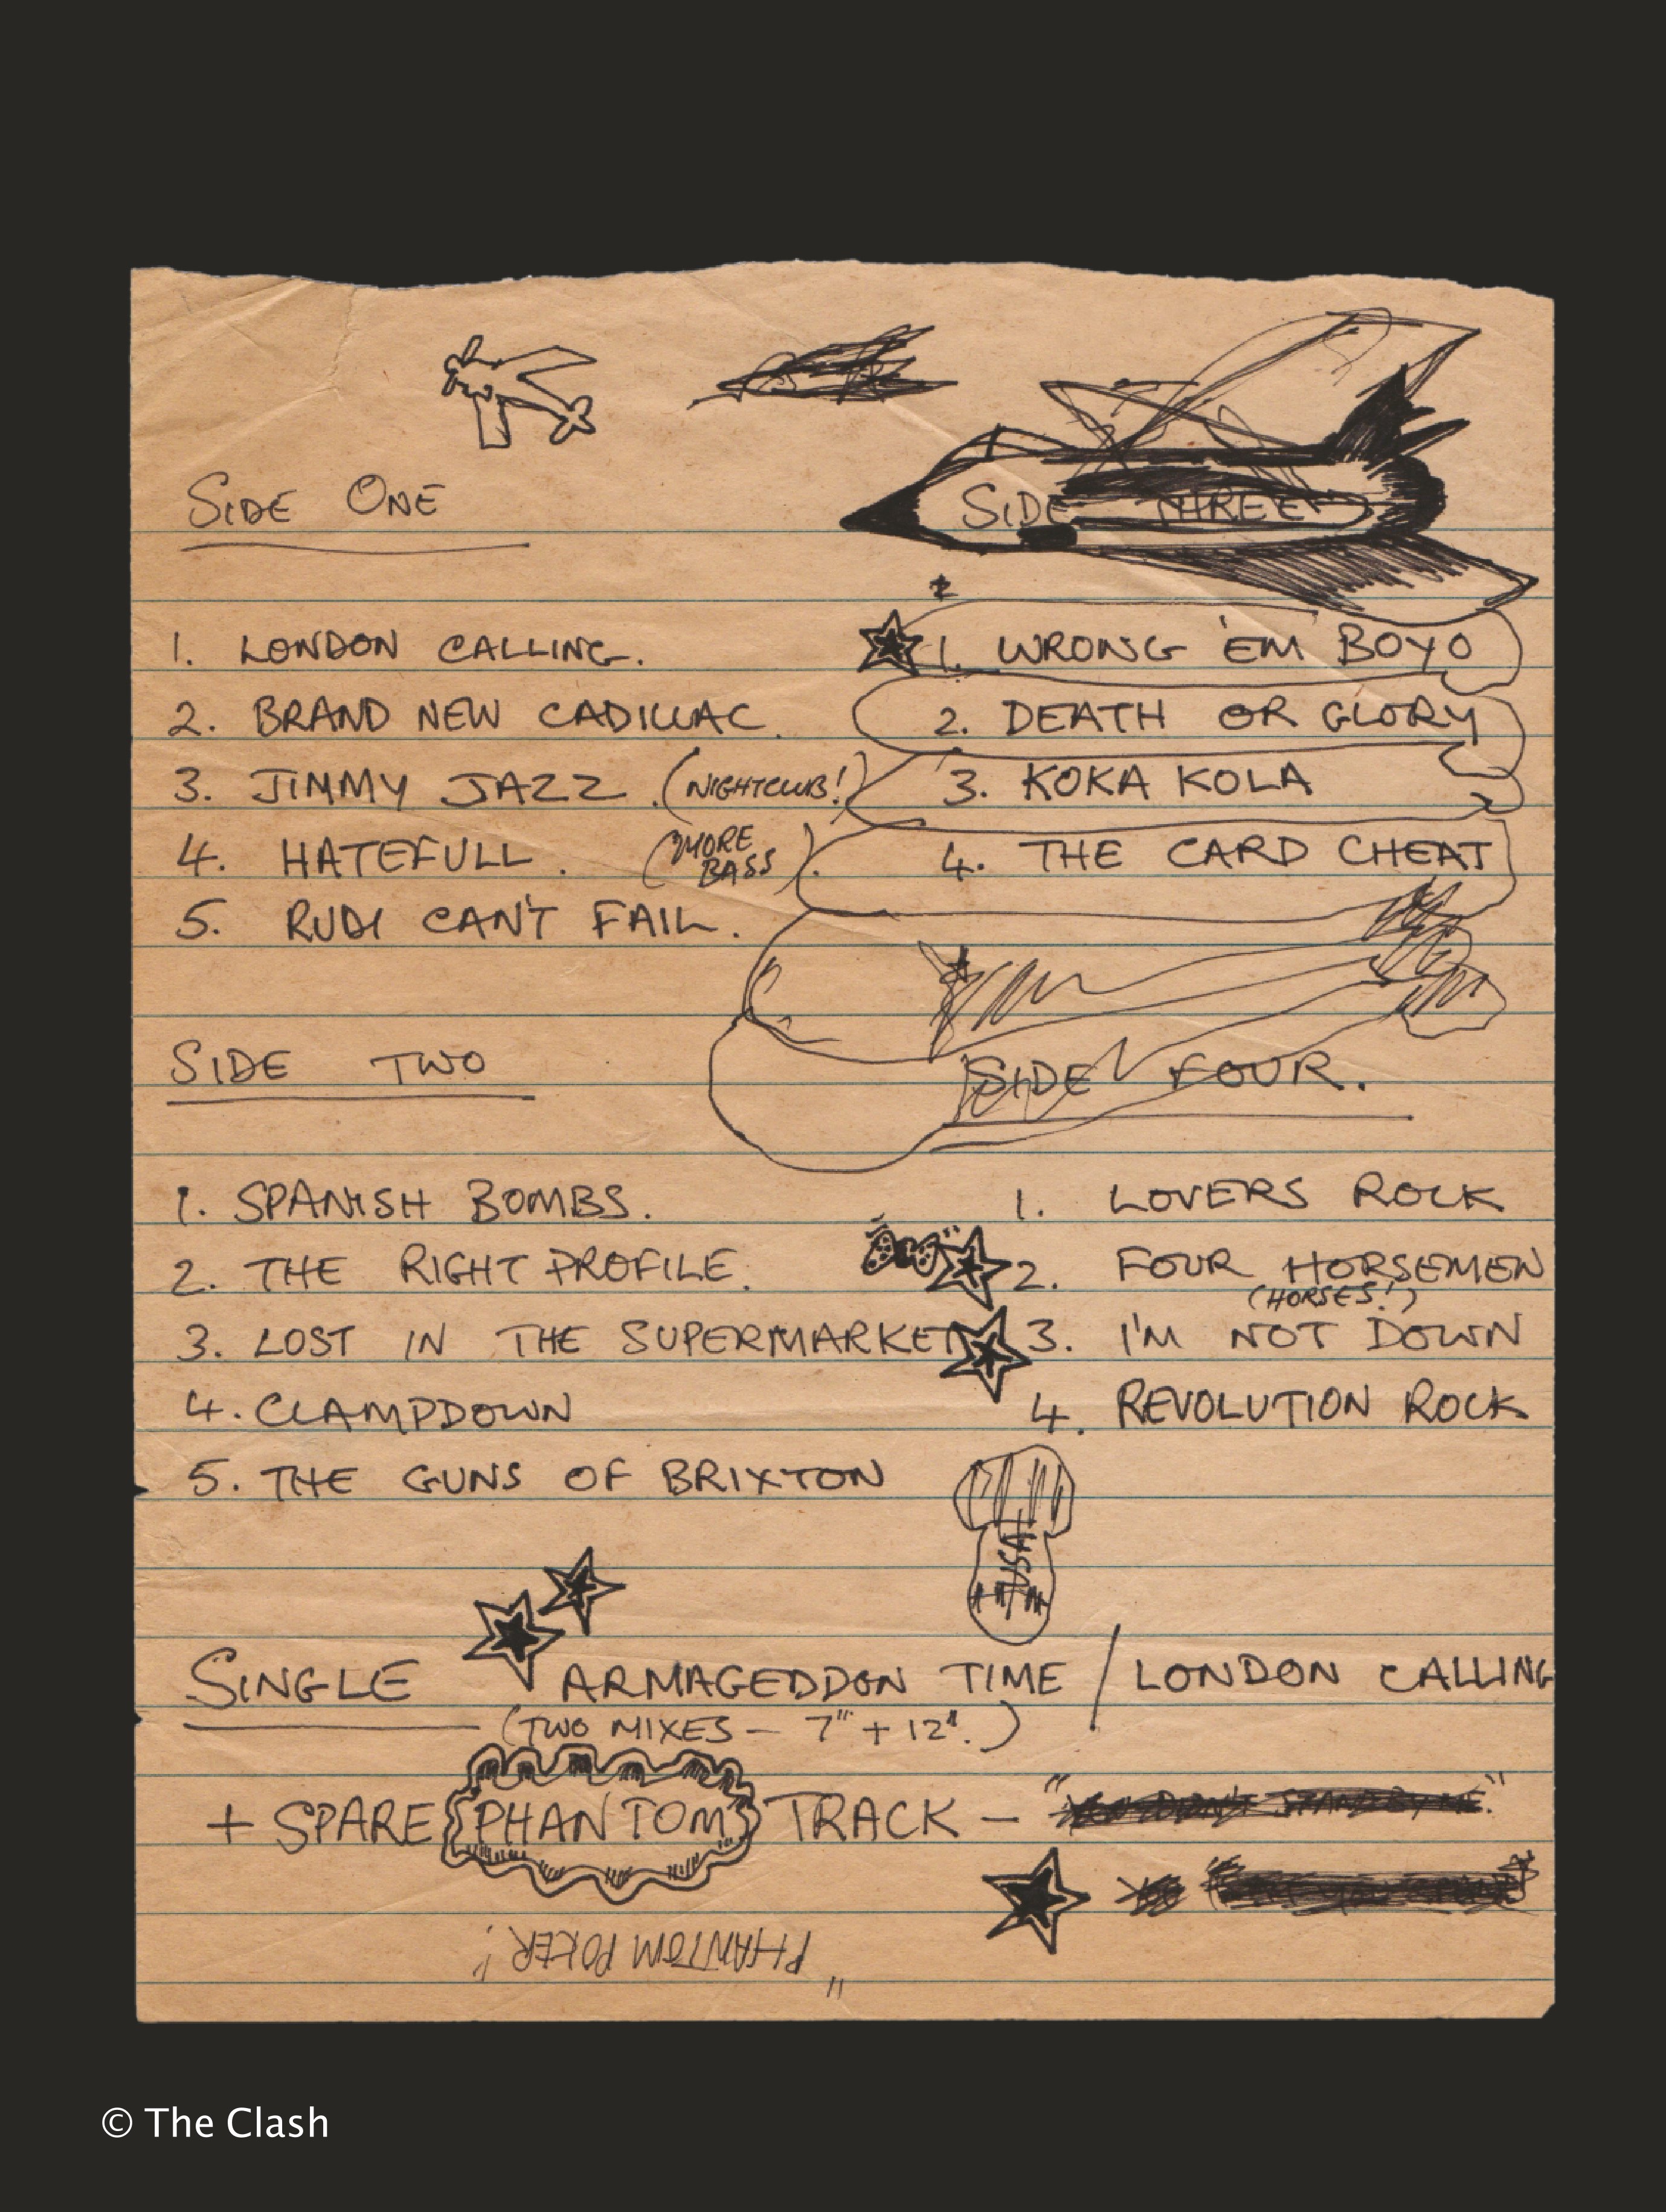 SIDE ONE
1. LONDON CALLING.
2. BRAND NEW CADILLAC.
3. JIMMY JAZZ. (NIGHTCLUB!)
4. HATEFULL. (MORE BASS).
5. RUDI CAN'T FAIL.
SIDE TWO
1. SPANISH BOMBS.
2. THE RIGHT PROFILE.
3. LOST IN THE SUPERMARKET
4. CLAMPDOWN
5. THE GUNS OF BRIXTON
SIDE THREE
1. WRONG 'EM BOYO
2. DEATH OR GLORY
3. KOKA KOLA
4. THE CARD CHEAT
SIDE FOUR.
1. LOVERS ROCK
2. FOUR HORSEMEN
(HORSES!)
3. I'M NOT DOWN
4. REVOLUTION ROCK
USA
SINGLE ARMAGEDDON TIME / LONDON CALLING
(TWO MIXES - 7" + 12".)
+ SPARE PHANTOM TRACK -
"PHANTOM POKER!"
© The Clash